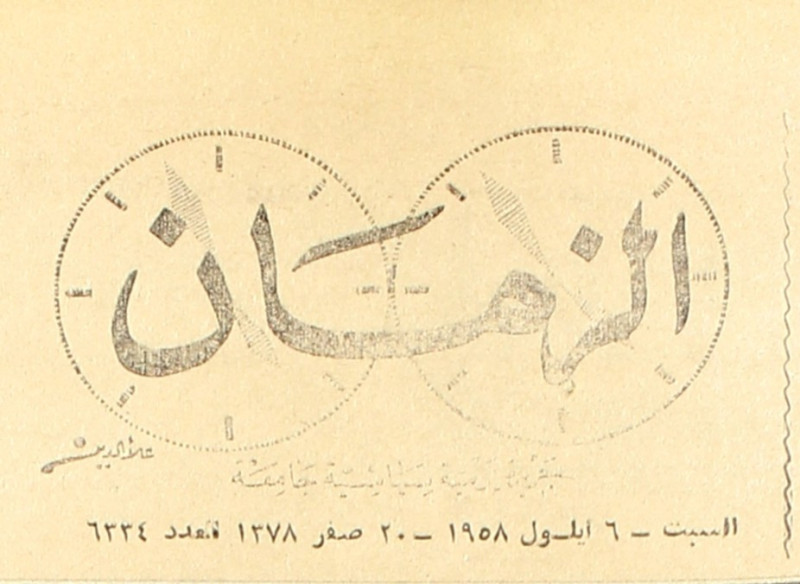 الزمان
علاء الدين
جريدة يومية سياسية جامعة
السبت – ٦ ايلول ١٩٥٨ – ٢٠ صفر ١٣٧٨ العدد ٦٣٣٤